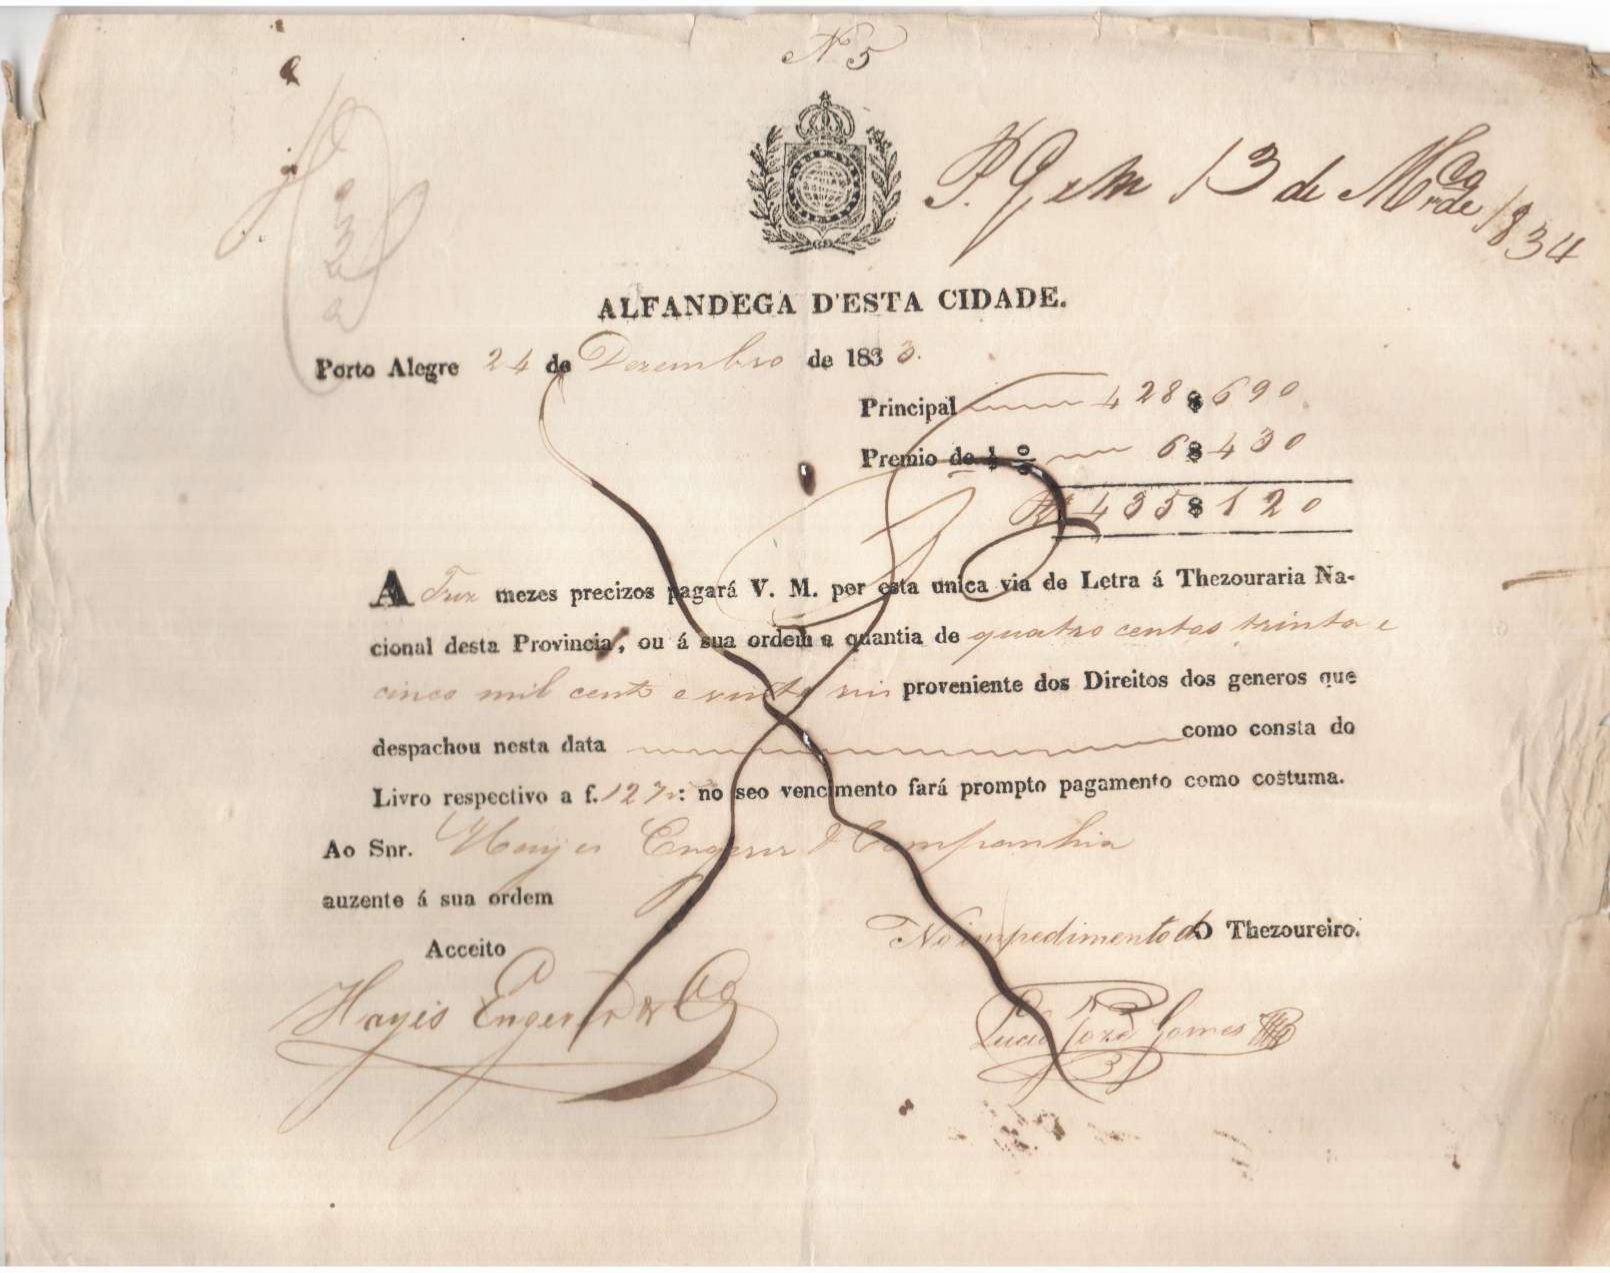 N 5
P. G em 13 de Mço de 1834
ALFANDEGA D'ESTA CIDADE.
Porto Alegre 24 de Dezembro de 1833.
Principal 428$690
Premio de ½ % 6$430
R 435$120
A Trez mezes precizos pagará V. M. por esta unica via de Letra á Thezouraria Na-
cional desta Provincia, ou á sua ordem a quantia de quatro centos trinta e
cinco mil cento e vinte reis proveniente dos Direitos dos generos que
despachou nesta data como consta do
Livro respectivo a f. 127v: no seo vencimento fará prompto pagamento como costuma.
Ao Snr. Hayes Engerer & Companhia
auzente á sua ordem
No impedimento do O Thezoureiro.
Acceito
Hayes Engerer & Co
Lucio Joze Gomes